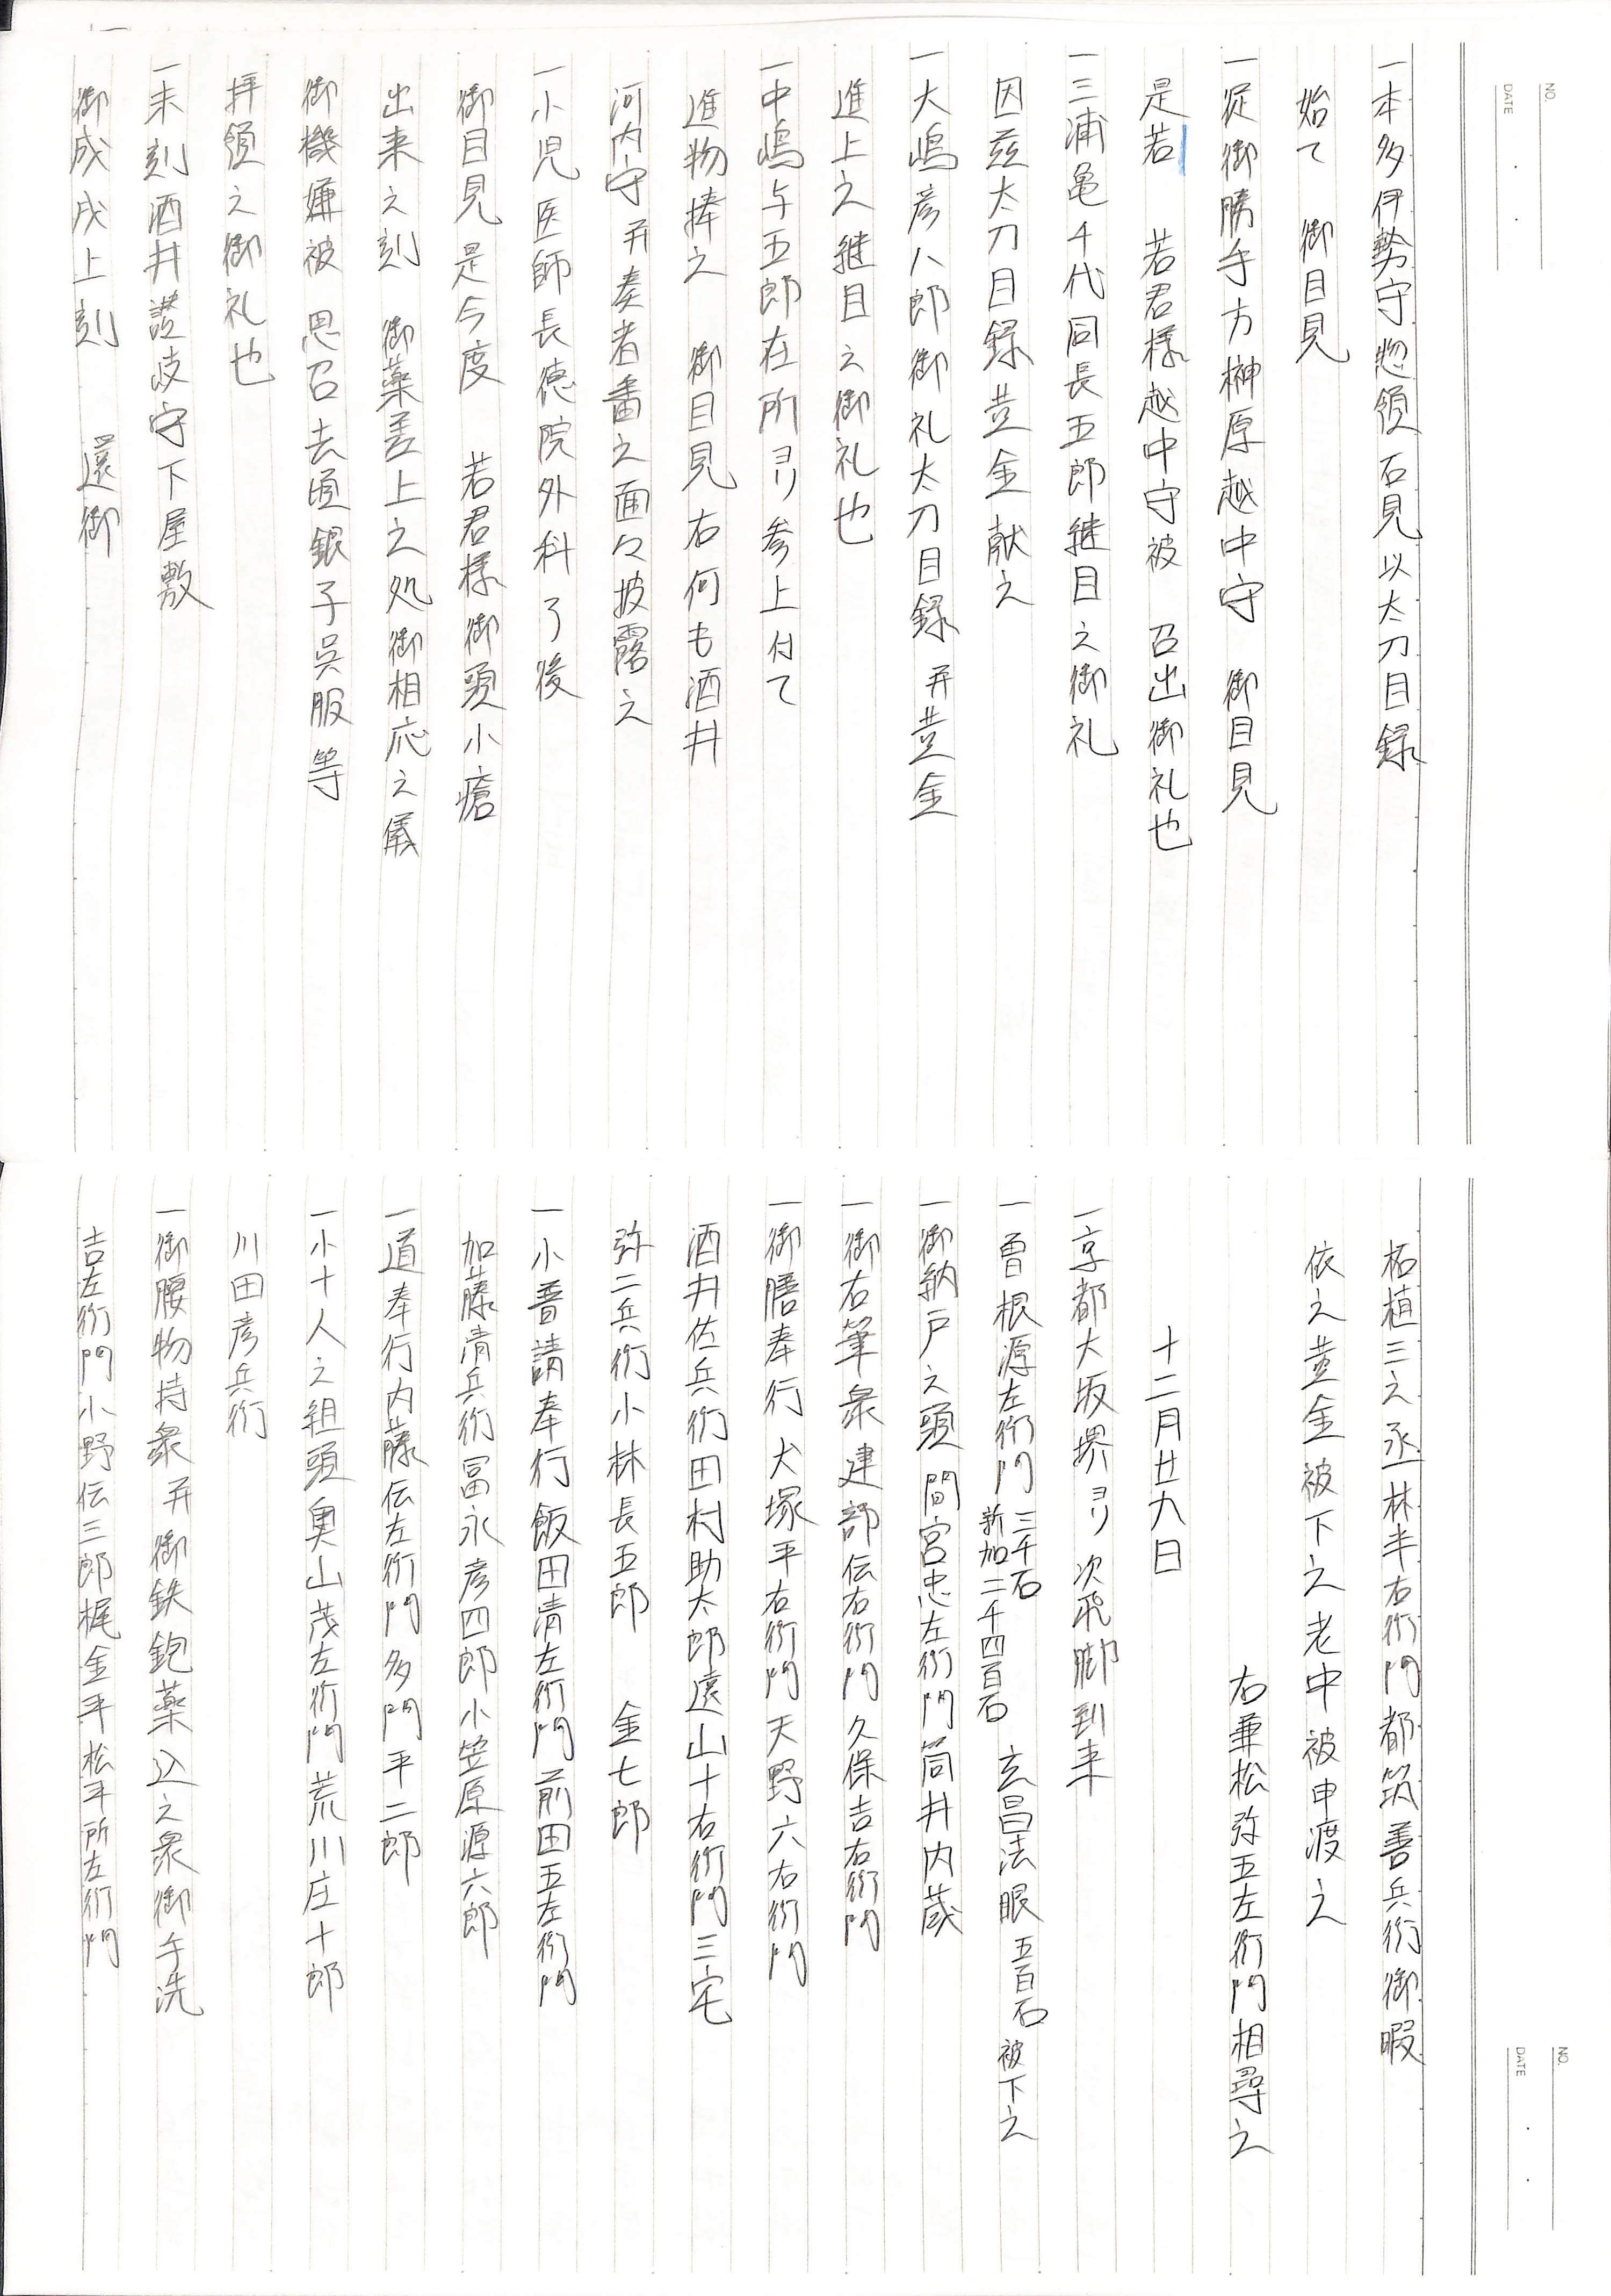 NO.
DATE
一本多伊勢守惣領石見以太刀目録
始て　御目見
一従御勝手方榊原越中守　御目見
是若　若君様越中守被　召出御礼也
一三浦亀千代同長五郎継目之御礼
因茲太刀目録黄金献之
一大嶋彦八郎御礼太刀目録并黄金
進上之継目之御礼也
一中嶋与五郎在所ヨリ参上付て
進物捧之　御目見右何も酒井
河内守并奏者番之面々披露之
一小児医師長徳院外科了後
御目見是今度　若君様御頭小瘡
出来之刻　御薬差上之処御相応之儀
御機嫌被　思召去頃銀子呉服等
拝領之御礼也
一未刻酒井讃岐守下屋敷
御成戌上刻　還御
NO.
DATE
柘植三之丞林半右衛門都筑善兵衛御暇
依之黄金被下之老中被申渡之
右兼松弥五左衛門相尋之
十二月廿九日
一京都大坂堺ヨリ次飛脚到来
一曽根源左衛門 三千石 新加二千四百石 玄昌法眼 五百石 被下之
一御納戸之頭間宮忠左衛門筒井内蔵
一御右筆衆建部伝右衛門久保吉右衛門
一御膳奉行犬塚平右衛門天野六右衛門
酒井佐兵衛田村助太郎遠山十右衛門三宅
弥二兵衛小林長五郎　金七郎
一小普請奉行飯田清左衛門前田五左衛門
加藤清兵衛冨永彦四郎小笠原源六郎
一道奉行内藤伝左衛門多門平二郎
一小十人之組頭奥山茂左衛門荒川庄十郎
川田彦兵衛
一御腰物持衆并御鉄炮薬込之衆御手洗
吉左衛門小野伝三郎梶金平松平所左衛門